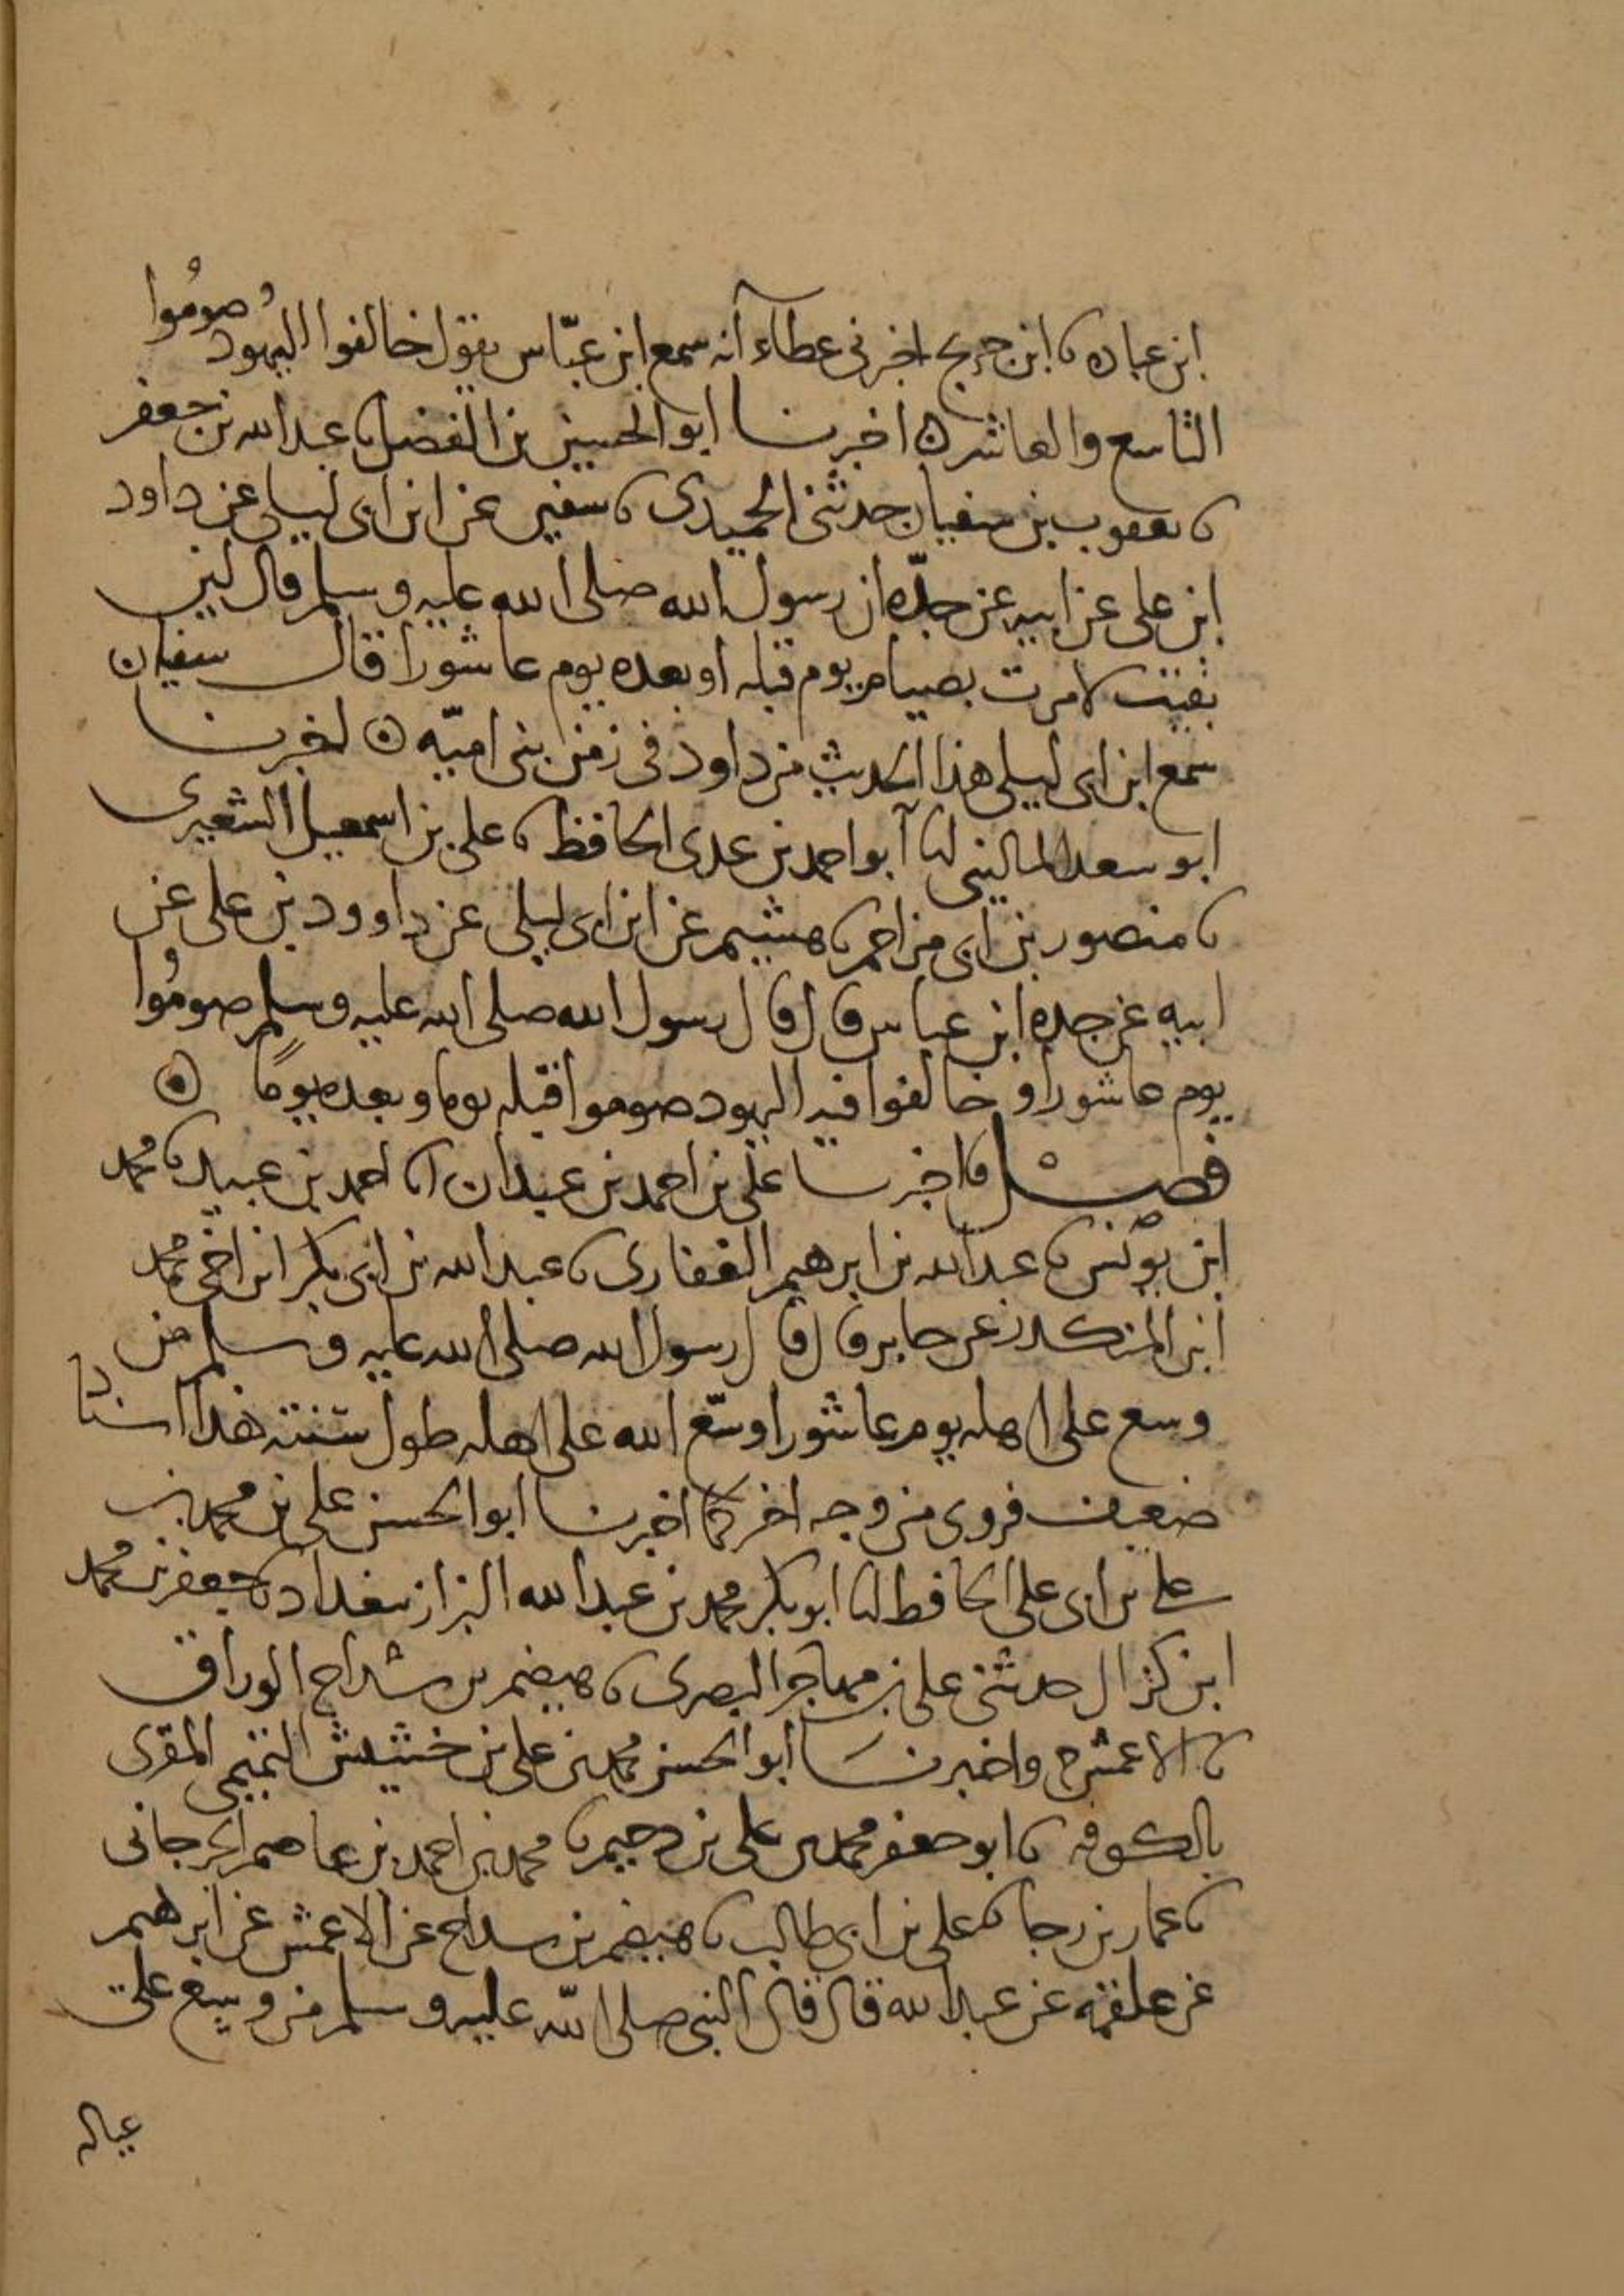 ابن عباده نا ابن جريج اخبرنى عطاء انه سمع ابن عبّاس يقول خالفوا اليهود صومُوا
التاسع والعاشر ه اخبرنا ابو الحسين بن الفضل نا عبد الله بن جعفر
نا يعقوب بن سفيان حدثنى الحميدى نا سفين عن ابن ابى ليلى عن داود
ابن على عن ابيه عن جدّه ان رسول الله صلى الله عليه وسلم قال لين
بقيت لامرت بصيام يوم قبله او بعده يوم عاشورا قال سفيان
سمع ابن ابى ليلى هذا الحديث من داود فى زمن بنى اميّه ه اخبرنا
ابو سعد المالينى انا ابو احمد بن عدى الحافظ نا على بن اسمعيل الشعيرى
نا منصور بن ابى مزاحم نا هشيم عن ابن ابى ليلى عن داوود بن على عن
ابيه عن جده ابن عباس قال قال رسول الله صلى الله عليه وسلم صومُوا
يوم عاشورا و خالفوا فيه اليهود صوموا قبله يوما وبعده يومًا ه
فصل نا اخبرنا على بن احمد بن عبدان انا احمد بن عبيد نا محمد
ابن يونس نا عبد الله بن ابرهيم الغفارى نا عبد الله بن ابى بكر ابن اخى محمد
ابن المنكدر عن جابر قال قال رسول الله صلى الله عليه وسلم من
وسع على اهله يوم عاشورا وسّع الله على اهله طول سنته هذا اسناد
ضعيف فروى من وجه اخر كما اخبرنا ابو الحسن على بن محمد بن
على بن ابى على الحافظ انا ابو بكر محمد بن عبد الله البزاز ببغداد نا جعفر بن محمد
ابن كزال حدثنى على بن مهاجر البصرى نا هيضم بن شداخ الوراق
نا الاعمش ح واخبرنا ابو الحسن محمد بن على بن خشيش التميمى المقرى
بالكوفه نا ابو جعفر محمد بن على بن دحيم نا محمد بن احمد بن عاصم الجرجانى
نا عمار بن رجا نا على بن ابى طالب نا هيضم بن سداخ عن الاعمش عن ابرهيم
عن علقمه عن عبد الله قال قال النبى صلى الله عليه وسلم من وسع على
عياله